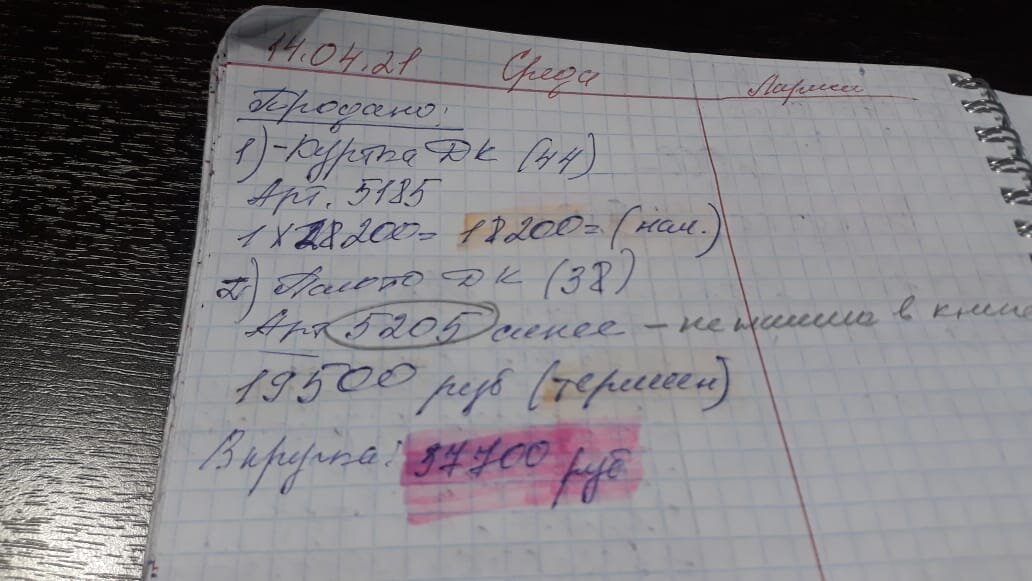 14.04.21 Среда
Лариса
Продано:
1) - Куртка ДК (44)
Арт. 5185
1 х 18200= 18200= (нал.)
2) Пальто ДК (38)
Арт 5205 синее - не в
19500 руб (термин)
Выручка: 37700 руб